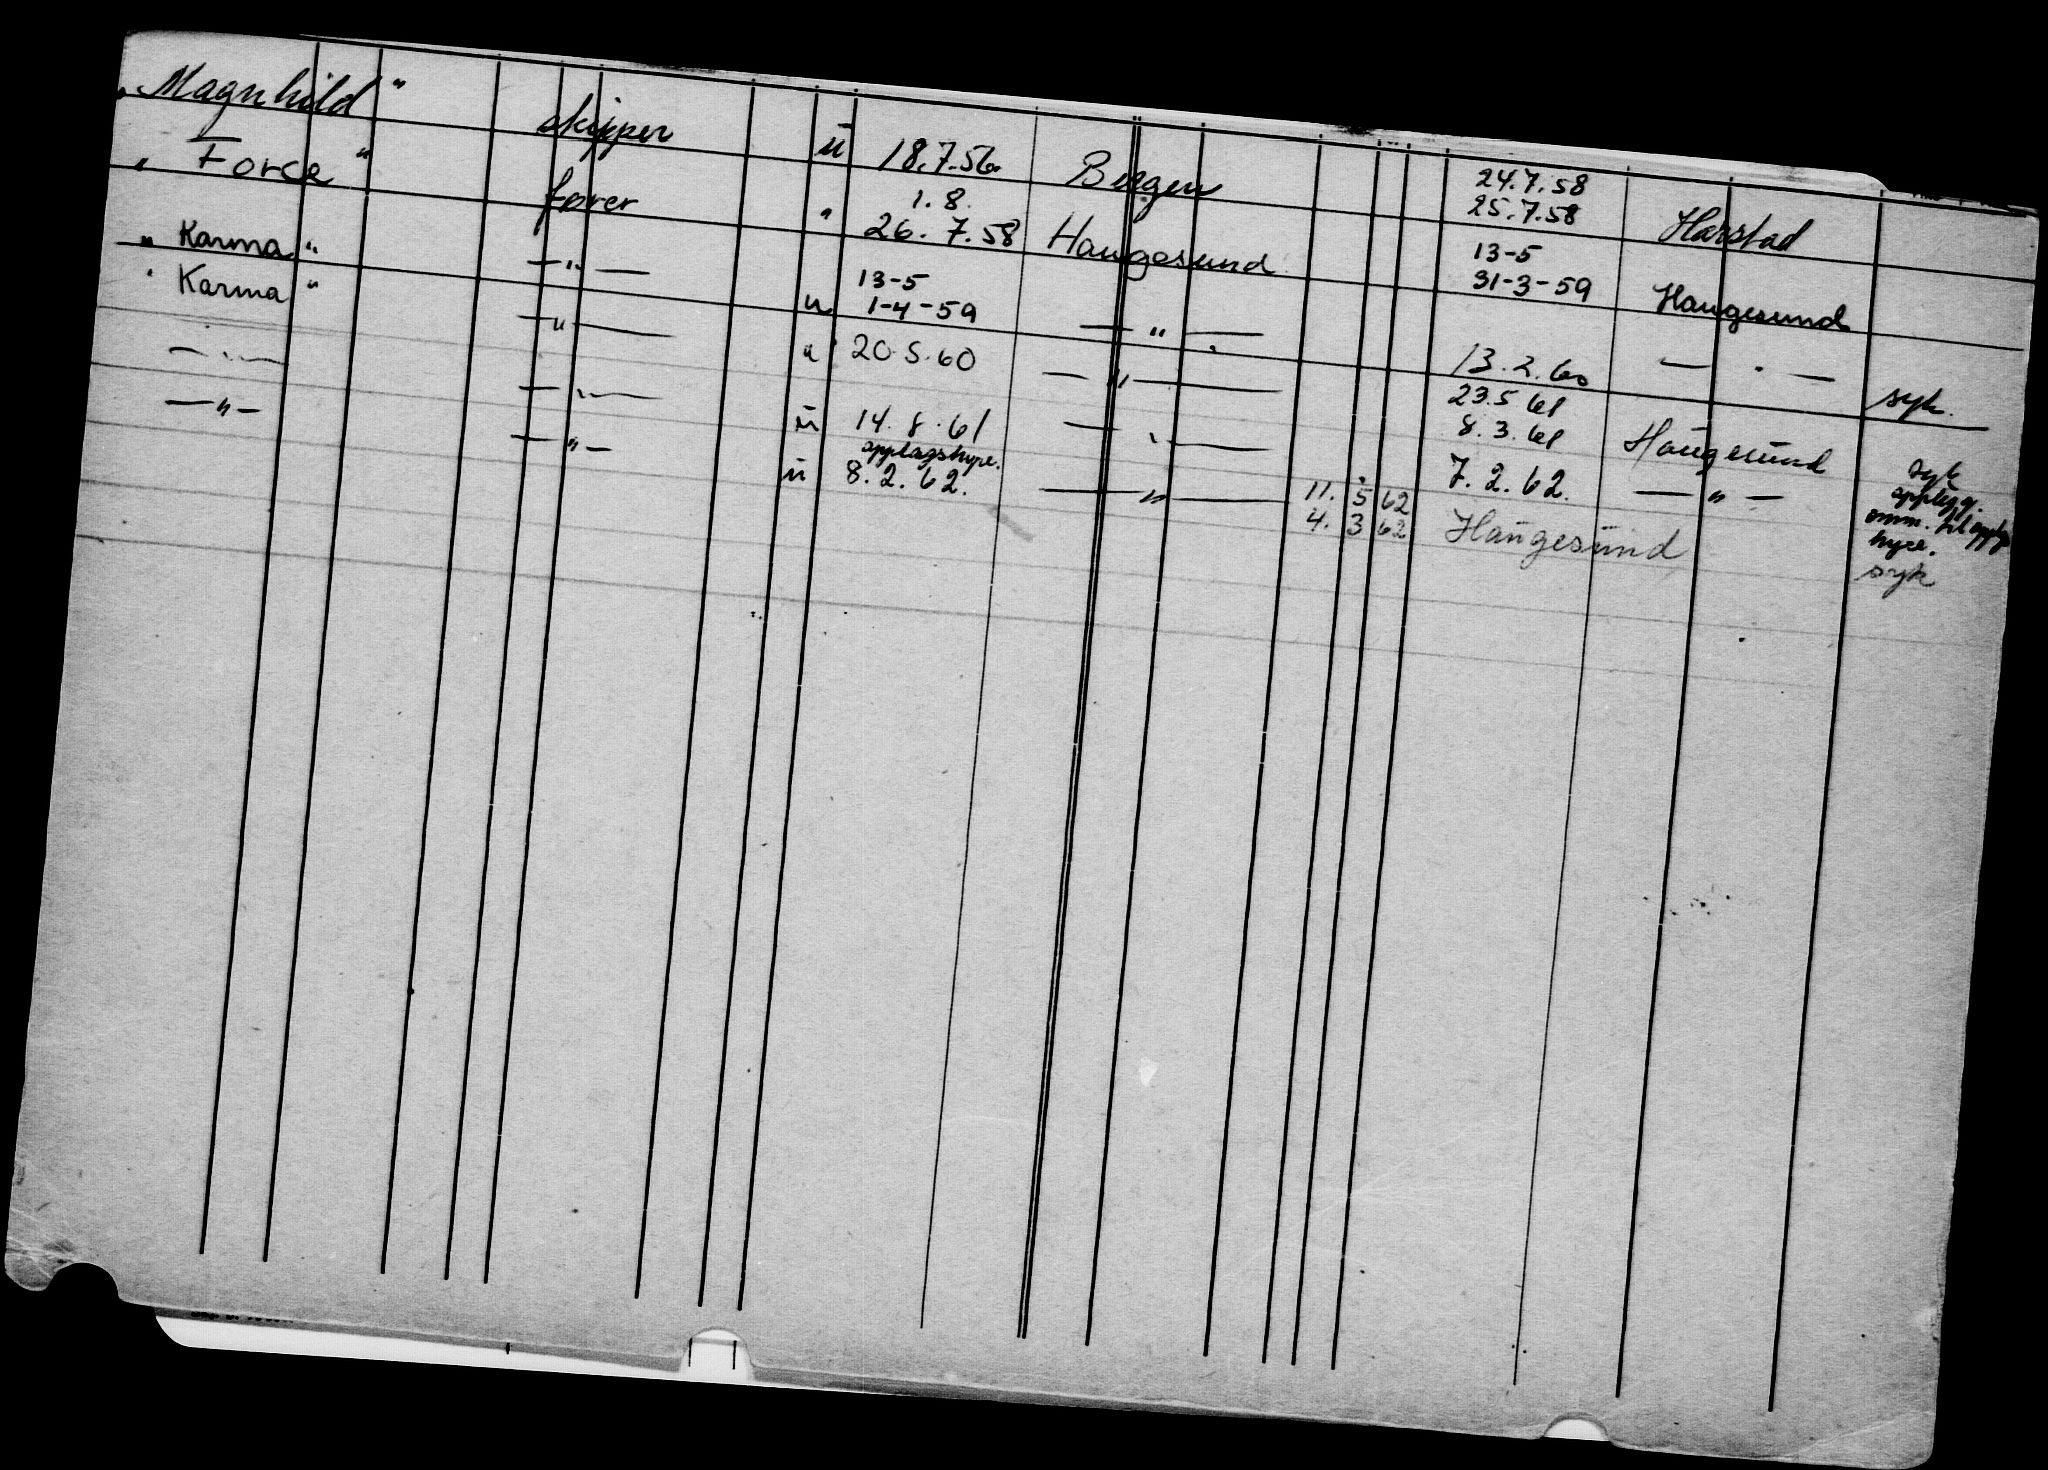 „Magnhild" skipper u 18.7.56 Bergen 24.7.58 Harstad
1.8. 25.7.58
„Force" fører " 26.7.58 Haugesund 13-5
13-5 31-3-59 Haugesund
„Karma" —"— u 1-4-59 —"— 13.2.60 —"— syk.
"Karma" —"— u 20.5.60 —"— 23.5.61
8.3.61 Haugesund syk
—"— —"— u 14.8.61 —"— 7.2.62. —"— opplegg.
opplagshyre. omm. til
—"— —"— u 8.2.62. —"— 11. 5 62 hyre.
4. 3 62 Haugesund syk